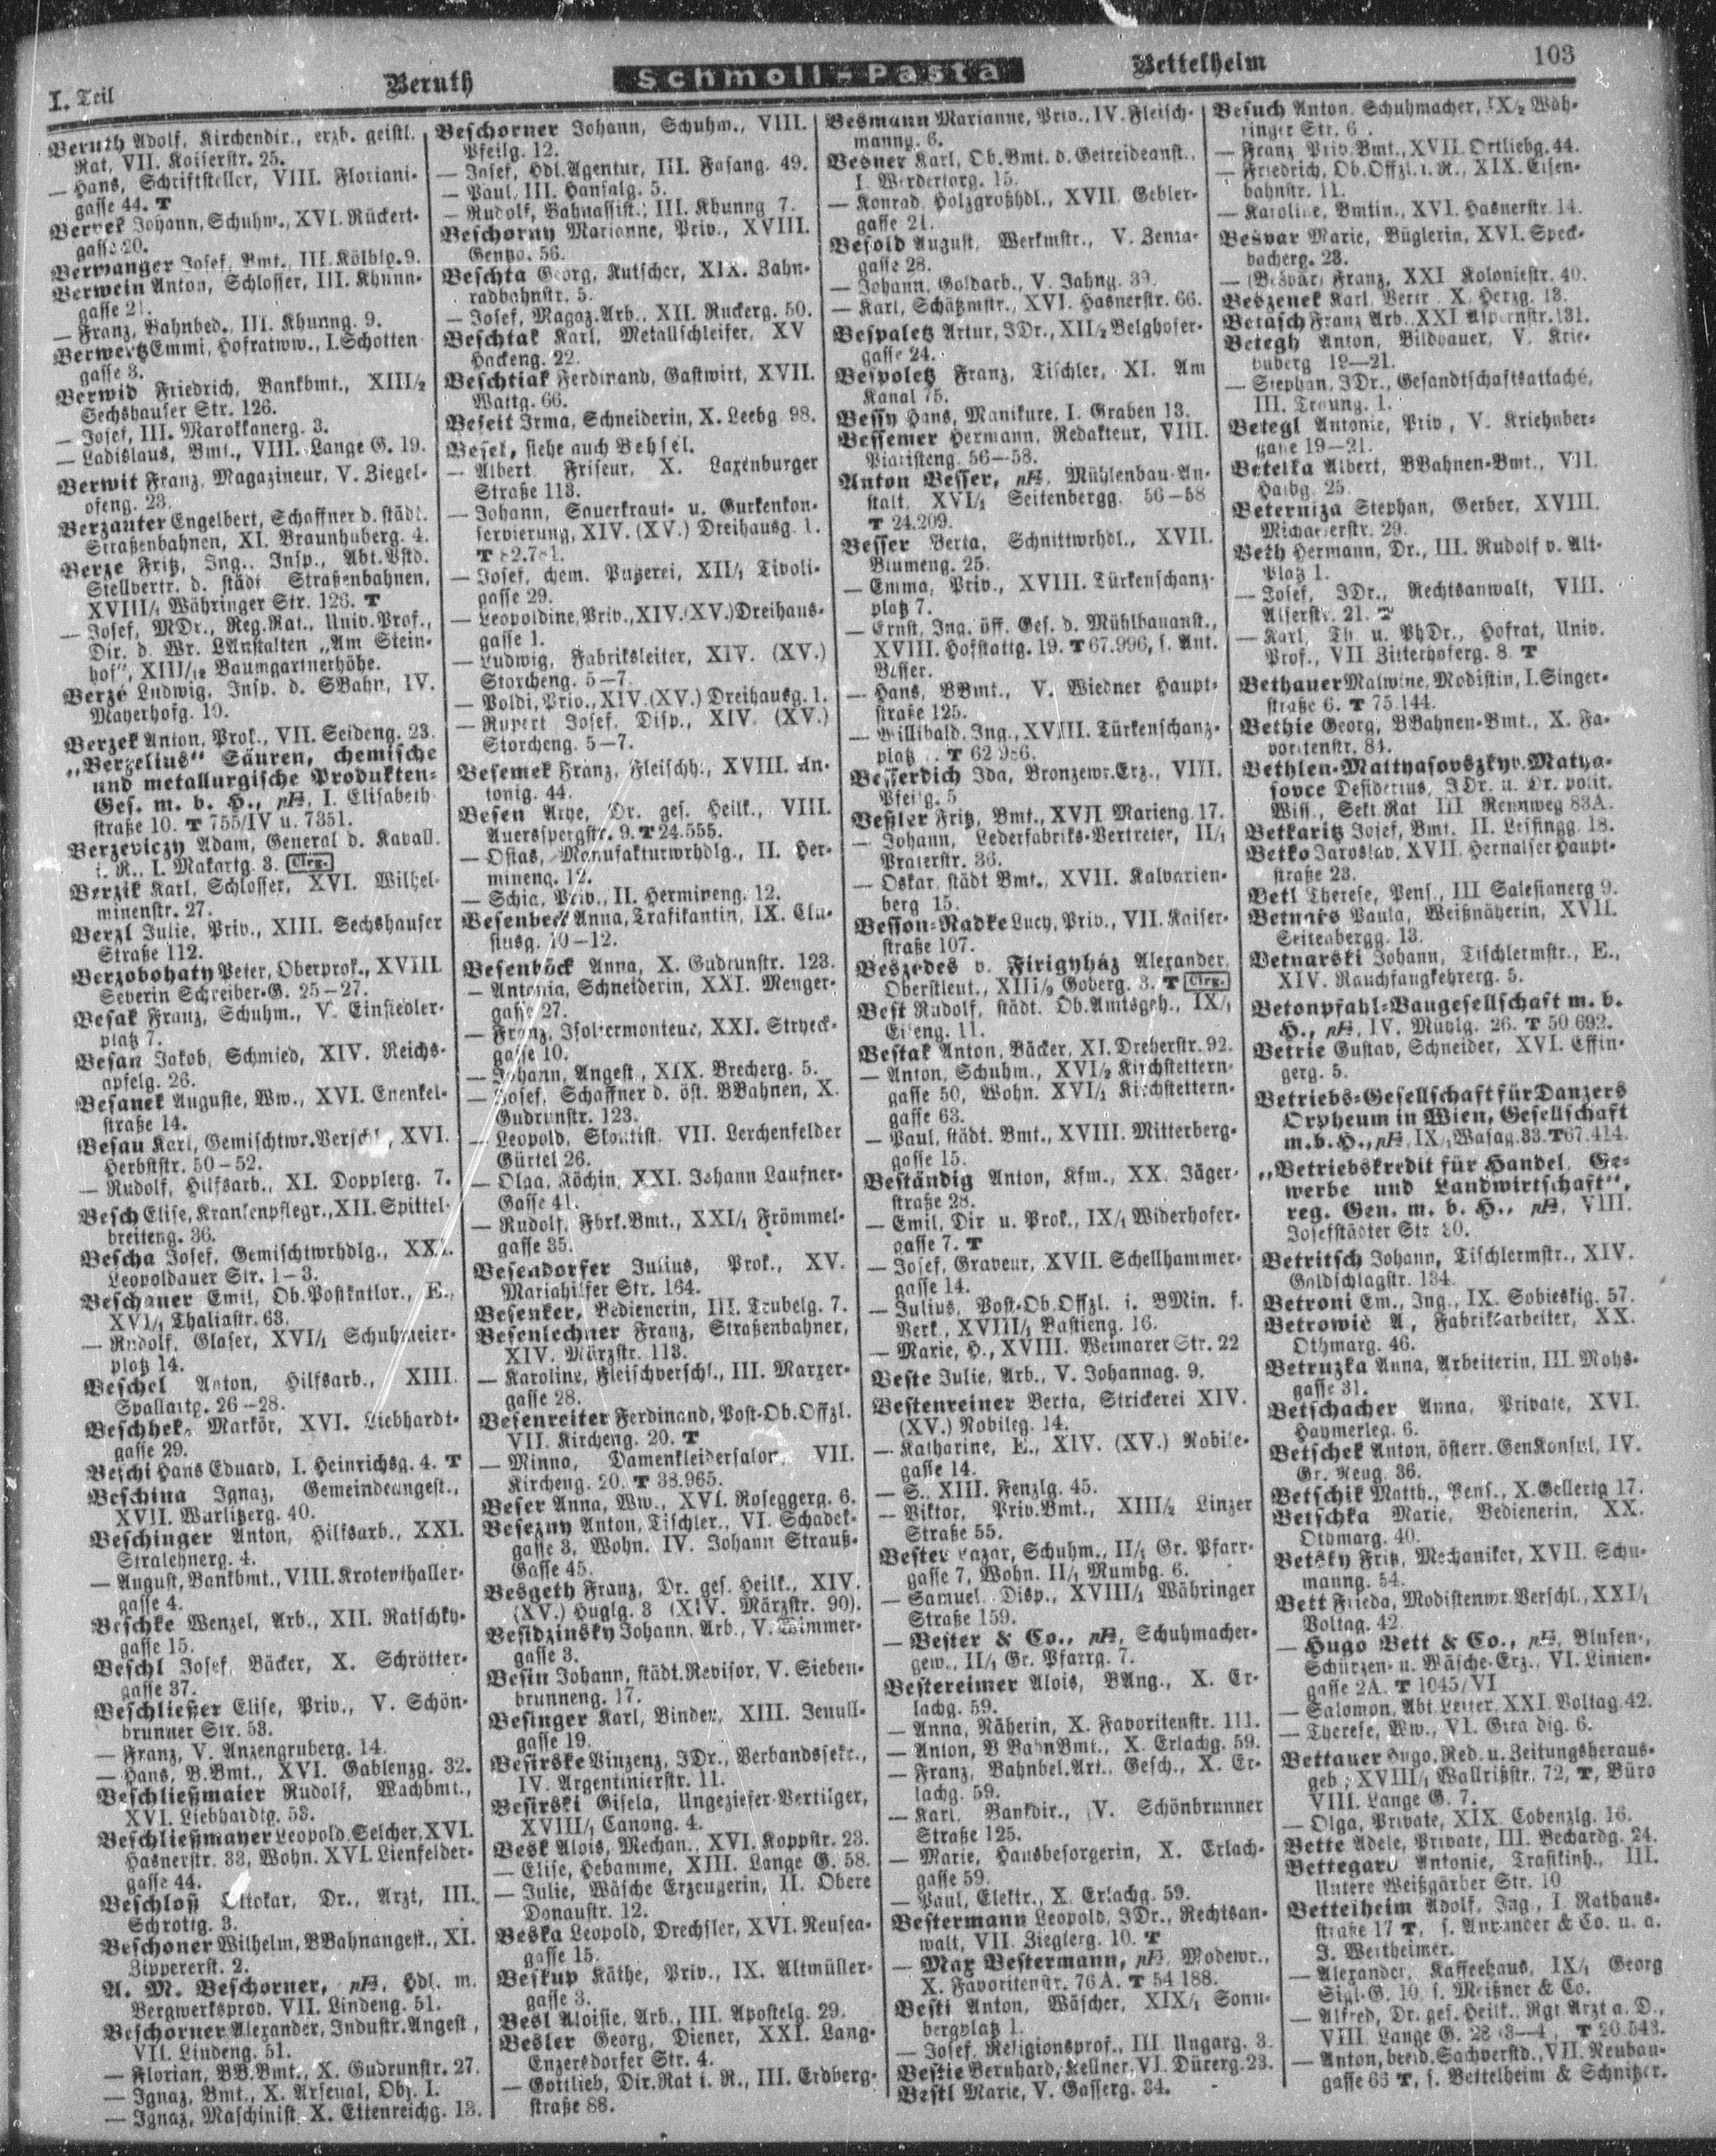 I. Teil
Beruth
Schmoll-Pasta
Bettelheim
103
Beruth Adolf, Kirchendir., erzb. geistl.
Rat, VII. Kaiserstr. 25.
— Hans, Schriftsteller, VIII. Floriani-
gasse 44. T
Bervek Johann, Schuhm., XVI. Rückert-
gasse 20.
Berwanger Josef, Bmt., III. Kölblg. 9.
Berwein Anton, Schlosser, III. Khunn-
gasse 21.
— Franz, Bahnbed., III. Khunng. 9.
Berwertz Emmi, Hofratww., I. Schotten
gasse 3.
Berwid Friedrich, Bankbmt., XIII/2
Sechshauser Str. 126.
— Josef, III. Marokkanerg. 3.
— Ladislaus, Bmt., VIII. Lange G. 19.
Berwit Franz, Magazineur, V. Ziegel-
ofeng. 23.
Berzauter Engelbert, Schaffner d. städt.
Straßenbahnen, XI. Braunhuberg. 4.
Berze Fritz, Ing., Insp., Abt.Vstd.
Stellvertr. d. städt Straßenbahnen,
XVIII/1 Währinger Str. 126. T
— Josef, MDr., Reg.Rat., Univ.Prof.,
Dir. d. Wr. LAnstalten „Am Stein-
hof“, XIII/12 Baumgartnerhöhe.
Berzé Ludwig, Insp. d. SBahn, IV.
Mayerhofg. 10.
Berzek Anton, Prok., VII. Seideng. 23.
„Berzelius“ Säuren, chemische
und metallurgische Produkten-
Ges. m. b. H., I. Elisabeth
straße 10. T 755/IV u. 7351.
Berzeviczy Adam, General d. Kavall.
i. R., I. Makartg. 3. Clrg.
Berzik Karl, Schlosser, XVI. Wilhel-
minenstr. 27.
Berzl Julie, Priv., XIII. Sechshauser
Straße 112.
Berzobohaty Peter, Oberprok., XVIII.
Severin Schreiber-G. 25—27.
Besak Franz, Schuhm., V. Einsiedler-
platz 7.
Besan Jakob, Schmied, XIV. Reichs-
apfelg. 26.
Besanek Auguste, Ww., XVI. Enenkel-
straße 14.
Besau Karl, Gemischtwr.Verschl., XVI.
Herbststr. 50—52.
— Rudolf, Hilfsarb., XI. Dopplerg. 7.
Besch Elise, Krankenpflegr., XII. Spittel-
breiteng. 36.
Bescha Josef, Gemischtwrhdlg., XXI.
Leopoldauer Str. 1—3.
Beschauer Emil, Ob.Postkntlor., E.,
XVI/1 Thaliastr. 63.
— Rudolf, Glaser, XVI/1 Schuhmeier-
platz 14.
Beschel Anton, Hilfsarb., XIII.
Spallartg. 26—28.
Beschhek, Markör, XVI. Liebhardt-
gasse 29.
Beschi Hans Eduard, I. Heinrichsg. 4. T
Beschina Ignaz, Gemeindeangest.,
XVII. Wurlitzerg. 40.
Beschinger Anton, Hilfsarb., XXI.
Stralehnerg. 4.
— August, Bankbmt., VIII. Krotenthaller-
gasse 4.
Beschke Wenzel, Arb., XII. Ratschky-
gasse 15.
Beschl Josef, Bäcker, X. Schrötter-
gasse 37.
Beschließer Elise, Priv., V. Schön-
brunner Str. 53.
— Franz, V. Anzengruberg. 14.
— Hans, B.Bmt., XVI. Gablenzg. 32.
Beschließmaier Rudolf, Wachbmt.,
XVI. Liebhardtg. 53.
Beschließmayer Leopold, Selcher, XVI.
Hasnerstr. 33, Wohn. XVI. Lienfelder-
gasse 44.
Beschloß Ottokar, Dr., Arzt, III.
Schrottg. 3.
Beschoner Wilhelm, BBahnangest., XI.
Zippererstr. 2.
A. M. Beschorner, Hdl. m.
Bergwerksprod. VII. Lindeng. 51.
Beschorner Alexander, Industr.Angest,
VII. Lindeng. 51.
— Florian, BB.Bmt., X. Gudrunstr. 27.
— Ignaz, Bmt., X. Arsenal, Obj. I.
— Ignaz, Maschinist, X. Ettenreichg. 13.
Beschorner Johann, Schuhm., VIII.
Pfeilg. 12.
— Josef, Hdl.Agentur, III. Fasang. 49.
— Paul, III. Hansalg. 5.
— Rudolf, Bahnassist., III. Khunng 7.
Beschorny Marianne, Priv., XVIII.
Gentzg. 56.
Beschta Georg, Kutscher, XIX. Zahn-
radbahnstr. 5.
— Josef, Magaz.Arb., XII. Ruckerg. 50.
Beschtak Karl, Metallschleifer, XV
Hackeng. 22.
Beschtiak Ferdinand, Gastwirt, XVII.
Wattg. 66.
Beseit Irma, Schneiderin, X. Leebg 98.
Besek, siehe auch Behsel.
— Albert Friseur, X. Laxenburger
Straße 113.
— Johann, Sauerkraut- u. Gurkenkon-
servierung, XIV. (XV.) Dreihausg. 1.
T
— Josef, chem. Putzerei, XII/1 Tivoli-
gasse 29.
— Leopoldine, Priv., XIV. (XV.) Dreihaus-
gasse 1.
— Ludwig, Fabriksleiter, XIV. (XV.)
Storcheng. 5—7.
— Poldi, Priv., XIV. (XV.) Dreihausg. 1.
— Rupert Josef, Disp., XIV. (XV.)
Storcheng. 5—7.
Besemek Franz, Fleischh., XVIII. An-
tonig. 44.
Besen Arye, Dr. ges. Heilk., VIII.
Auerspergstr. 9. T 24.555.
— Osias, Manufakturwrhdlg., II. Her-
mineng. 12.
— Schia, Priv., II. Hermineng. 12.
Besenbeck Anna, Trafikantin, IX. Clu-
siusg. 10—12.
Besenböck Anna, X. Gudrunstr. 123.
— Antonia, Schneiderin, XXI. Menger-
gasse 27.
— Franz, Isoliermonteur, XXI. Stryeck-
gasse 10.
— Johann, Angest., XIX. Brecherg. 5.
— Josef, Schaffner d. öst. BBahnen, X.
Gudrunstr. 123.
— Leopold, Skontist, VII. Lerchenfelder
Gürtel 26.
— Olga, Köchin, XXI. Johann Laufner-
Gasse 41.
— Rudolf, Fbrk.Bmt., XXI/1 Frömmel-
gasse 35.
Besendorfer Julius, Prok., XV.
Mariahilfer Str. 164.
Besenker, Bedienerin, III. Traubelg. 7.
Besenlechner Franz, Straßenbahner,
XIV. Märzstr. 113.
— Karoline, Fleischverschl., III. Marxer-
gasse 28.
Besenreiter Ferdinand, Post-Ob.Offzl.
VII. Kircheng. 20. T
— Minna, Damenkleidersalon, VII.
Kircheng. 20. T 38.965.
Beser Anna, Ww., XVI. Roseggerg. 6.
Besezny Anton, Tischler., VI. Schadek-
gasse 3, Wohn. IV. Johann Strauß-
Gasse 45.
Besgeth Franz, Dr. ges. Heilk., XIV.
(XV.) Huglg. 3 (XIV. Märzstr. 90).
Besidzinsky Johann, Arb., V. Wimmer-
gasse 3.
Besin Johann, städt.Revisor, V. Sieben-
brunneng. 17.
Besinger Karl, Binder, XIII. Jenull-
gasse 19.
Besirske Vinzenz, JDr., Verbandssekr.,
IV. Argentinierstr. 11.
Besirski Gisela, Ungeziefer-Vertilger,
XVIII/1 Canong. 4.
Besk Alois, Mechan., XVI. Koppstr. 23.
— Elise, Hebamme, XIII. Lange G. 58.
— Julie, Wäsche Erzeugerin, II. Obere
Donaustr. 12.
Beska Leopold, Drechsler, XVI. Neusea-
gasse 15.
Beskup Käthe, Priv., IX. Altmüller-
gasse 3.
Besl Aloisie, Arb., III. Apostelg. 29.
Besler Georg, Diener, XXI. Lang-
Enzersdorfer Str. 4.
— Gottlieb, Dir.Rat i. R., III. Erdberg-
straße 88.
Besmann Marianne, Priv., IV. Fleisch-
manng. 6.
Besner Karl, Ob.Bmt. d. Getreideanst.,
I. Werdertorg. 15.
— Konrad, Holzgroßhdl., XVII. Gebler-
gasse 21.
Besold August, Werkmstr., V. Zenta-
gasse 28.
— Johann, Goldarb., V. Jahng. 39.
— Karl, Schätzmstr., XVI. Hasnerstr. 66.
Bespaletz Artur, JDr., XII/2 Belghofer-
gasse 24.
Bespoletz Franz, Tischler, XI. Am
Kanal 75.
Bessy Hans, Manikure, I. Graben 13.
Bessemer Hermann, Redakteur, VIII.
Piaristeng. 56—58.
Anton Besser, Mühlenbau-An-
stalt, XVI/1 Seitenbergg. 56—58
T 24.209.
Besser Berta, Schnittwrhdl., XVII.
Blumeng. 25.
— Emma, Priv., XVIII. Türkenschanz-
platz 7.
— Ernst, Ing. öff. Ges. d. Mühlbauanst.,
XVIII. Hofstattg. 19. T 67.996, s. Ant.
Besser.
— Hans, BBmt., V. Wiedner Haupt-
straße 125.
— Willibald, Ing., XVIII. Türkenschanz-
platz T 62 986.
Besserdich Ida, Bronzewr.Erz., VIII.
Pfeilg. 5
Beßler Fritz, Bmt., XVII Marieng. 17.
— Johann, Lederfabriks-Vertreter, II/1
Praterstr. 36.
— Oskar, städt Bmt., XVII. Kalvarien-
berg 15.
Besson-Radke Lucy, Priv., VII. Kaiser-
straße 107.
Beszedes v. Firigyház Alexander,
Oberstleut., XIII/2 Goberg. 3. T Clrg.
Best Rudolf, städt. Ob.Amtsgeh., IX/1
Eiseng. 11.
Bestak Anton, Bäcker, XI. Dreherstr. 92.
— Anton, Schuhm., XVI/2 Kirchstettern-
gasse 50, Wohn. XVI/1 Kirchstettern-
gasse 63.
— Paul, städt. Bmt., XVIII. Mitterberg-
gasse 15.
Beständig Anton, Kfm., XX. Jäger-
straße 28.
— Emil, Dir u. Prok., IX/1 Widerhofer-
gasse 7. T
— Josef, Graveur, XVII. Schellhammer-
gasse 14.
— Julius, Post-Ob.Offzl. i. BMin. f.
Verk., XVIII/1 Bastieng. 16.
— Marie, H., XVIII. Weimarer Str. 22
Beste Julie, Arb., V. Johannag. 9.
Bestenreiner Berta, Strickerei XIV.
(XV.) Nobileg. 14.
— Katharine, E., XIV. (XV.) Nobile-
gasse 14.
— S., XIII. Fenzlg. 45.
— Viktor, Priv.Bmt., XIII/2 Linzer
Straße 55.
Bester Lazar, Schuhm., II/1 Gr. Pfarr-
gasse 7, Wohn. II/1 Mumbg. 6.
— Samuel, Disp., XVIII/1 Währinger
Straße 159.
— Bester & Co., Schuhmacher-
gew., II/1 Gr. Pfarrg. 7.
Bestereimer Alois, BAng., X. Er-
lachg. 59.
— Anna, Näherin, X. Favoritenstr. 111.
— Anton, B BahnBmt., X. Erlachg. 59.
— Franz, Bahnbel.Art., Gesch., X. Er-
lachg. 59.
— Karl, Bankdir., V. Schönbrunner
Straße 125.
— Marie, Hausbesorgerin, X. Erlach-
gasse 59.
— Paul, Elektr., X. Erlachg. 59.
Bestermann Leopold, JDr., Rechtsan-
walt, VII. Zieglerg. 10. T
— Max Bestermann, Modewr.,
X. Favoritenstr. 76A. T 54 188.
Besti Anton, Wäscher, XIX/1 Sonn-
bergplatz 1.
— Josef, Religionsprof., III. Ungarg. 3.
Bestie Bernhard, Kellner, VI. Dürerg. 23.
Bestl Marie, V. Gasserg. 34.
Besuch Anton, Schuhmacher, IX/2 Wäh-
ringer Str. 6.
— Franz Priv.Bmt., XVII. Ortliebg. 44.
— Friedrich, Ob.Offzl. i. R., XIX. Eisen-
bahnstr. 11.
— Karoline, Bmtin., XVI. Hasnerstr. 14.
Besvar Marie, Büglerin, XVI. Speck-
bacherg. 23.
— (Besvár) Franz, XXI Koloniestr. 40.
Beszenek Karl, Vertr. X. Herzg. 13.
Betasch Franz Arb., XXI Aspernstr. 131.
Betegh Anton, Bildhauer, V. Krie-
huberg 19—21.
— Stephan, JDr., Gesandtschaftsattaché,
III. Traung. 1.
Betegl Antonie, Priv, V. Kriehuber-
gasse 19—21.
Betelka Albert, BBahnen-Bmt., VII.
Halbg. 25.
Beterniza Stephan, Gerber, XVIII.
Michaelerstr. 29.
Beth Hermann, Dr., III. Rudolf v. Alt-
Platz 1.
— Josef, JDr., Rechtsanwalt, VIII.
Alserstr. 21. T
— Karl, Th. u. PhDr., Hofrat, Univ.
Prof., VII Zitterhoferg. 8. T
Bethauer Malwine, Modistin, I. Singer-
straße 6. T 75.144.
Bethie Georg, BBahnen-Bmt., X. Fa-
voritenstr. 84.
Bethlen-Mattyasovszky v. Matya-
sovce Desiderius, JDr. u. Dr. polit.
Wiss., Sekt Rat III Rennweg 83A.
Betkaritz Josef, Bmt. II. Leisingg. 18.
Betko Jaroslav, XVII. Hernalser Haupt-
straße 23.
Betl Therese, Pens., III Salesianerg 9.
Betnars Paula, Weißnäherin, XVII.
Seitenbergg. 13.
Betnarski Johann, Tischlermstr., E.,
XIV. Rauchfangkehrerg. 5.
Betonpfahl-Baugesellschaft m. b.
H., IV. Mühlg. 26. T 50 692.
Betrie Gustav, Schneider, XVI. Effin-
gerg. 5.
Betriebs-Gesellschaft für Danzers
Orpheum in Wien, Gesellschaft
m. b. H., IX/1 Wasag. 33. T 67.414.
„Betriebskredit für Handel, Ge-
werbe und Landwirtschaft“,
reg. Gen. m. b. H., VIII.
Josefstädter Str.
Betritsch Johann, Tischlermstr., XIV.
Goldschlagstr. 134.
Betroni Em., Ing., IX. Sobieskig. 57.
Betrowic A., Fabriksarbeiter, XX.
Othmarg. 46.
Betruzka Anna, Arbeiterin, III. Mohs-
gasse 31.
Betschacher Anna, Private, XVI.
Haymerleg. 6.
Betschek Anton, österr. GenKonsul, IV.
Gr. Neug. 36.
Betschik Matth., Pens., X. Gellertg 17.
Betschka Marie, Bedienerin, XX.
Othmarg. 40.
Betsky Fritz, Mechaniker, XVII. Schu-
manng. 54.
Bett Frieda, Modistenwr.Verschl., XXI/1
Voltag. 42.
— Hugo Bett & Co., Blusen-,
Schürzen- u. Wäsche-Erz., VI. Linien-
gasse 2A. T 1045/VI
— Salomon, Abt.Leiter, XXI. Voltag. 42.
— Therese, Ww., VI. 6.
Bettauer Hugo, Red. u. Zeitungsheraus-
geb., XVIII/1 Wallrißstr. 72, T, Büro
VIII. Lange G. 7.
— Olga, Private, XIX. Cobenzlg. 16.
Bette Adele, Private, III. Bechardg. 24.
Bettegard Antonie, Trafikinh., III.
Untere Weißgärber Str. 10
Bettelheim Adolf, Ing., I. Rathaus-
straße 17 T, s. & Co. u. a.
J. Wertheimer.
— Alexander, Kaffeehaus, IX/1 Georg
Sigl-G. 10, s. Meißner & Co.
— Alfred, Dr. ges. Heilk., Rgt Arzt a. D.,
VIII. Lange G. 28 (3—4), T 20.543.
— Anton, beeid. Sachverstd., VII. Neubau-
gasse 66 T, s. Bettelheim & Schnitzer.